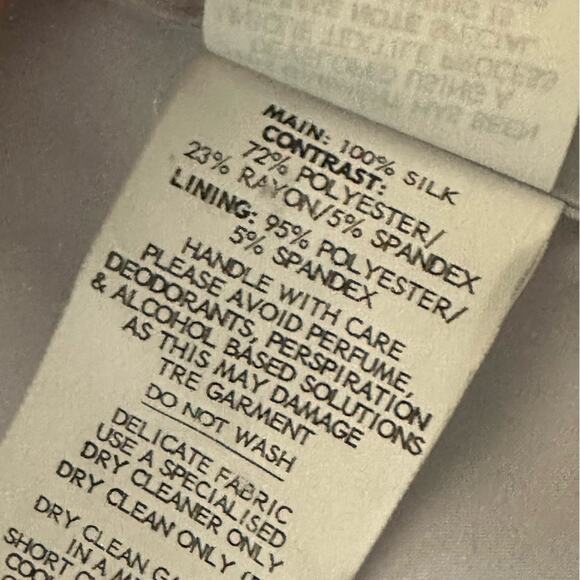 MAIN: 100% SILK
CONTRAST:
72% POLYESTER/
23% RAYON/5% SPANDEX
LINING: 95% POLYESTER/
5% SPANDEX
HANDLE WITH CARE
PLEASE AVOID PERFUME,
DEODORANTS, PERSPIRATION
& ALCOHOL BASED SOLUTIONS
AS THIS MAY DAMAGE
TRE GARMENT
DO NOT WASH
DELICATE FABRIC
USE A SPECIALISED
DRY CLEANER ONLY
DRY CLEAN ONLY
DRY CLEAN
IN A
SHORT